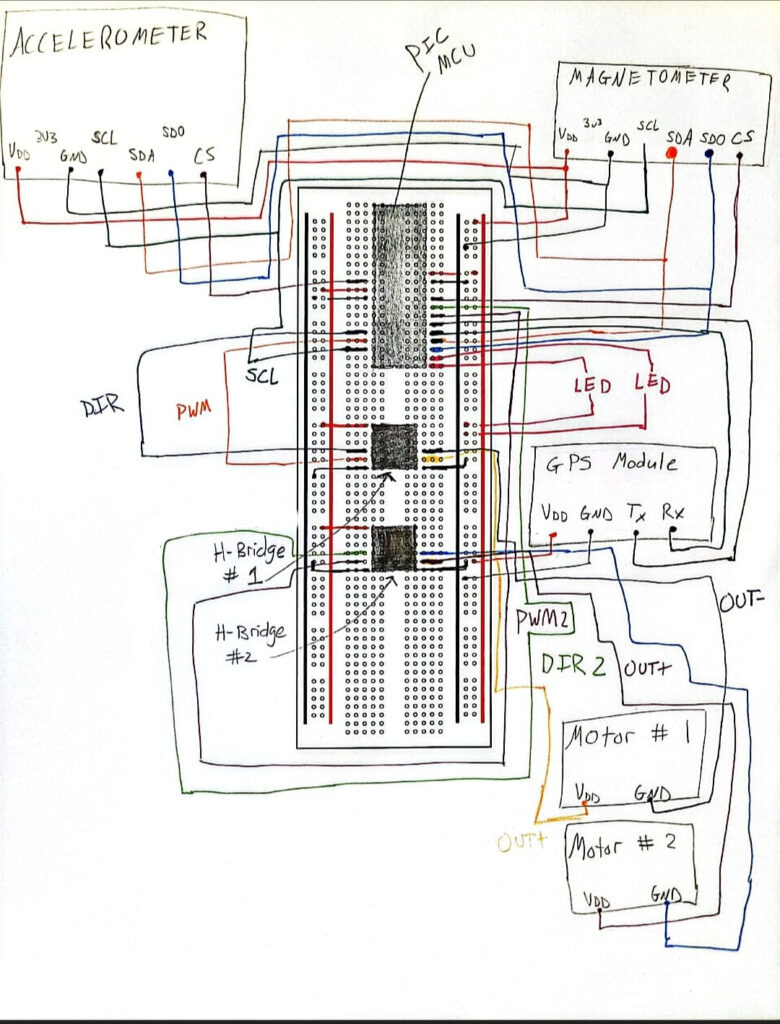 ACCELEROMETER
VDD 3V3 GND SCL SDA SDO CS
PIC
MCU
MAGNETOMETER
VDD 3V3 GND SCL SDA SDO CS
DIR
PWM
SCL
LED LED
GPS Module
VDD GND Tx Rx
H-Bridge
# 1
H-Bridge
#2
OUT-
PWM2
DIR 2
OUT+
Motor # 1
VDD GND
OUT+
Motor # 2
VDD GND